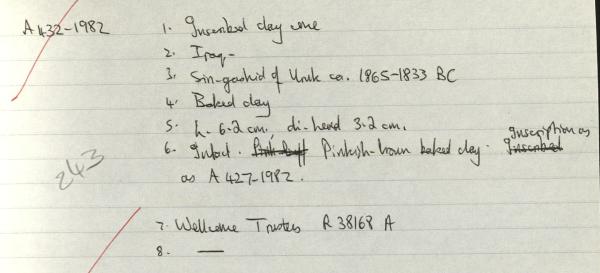 A432-1982
1. Inscribed clay cone
2. Iraq
3. Sin-gashid of Uruk ca. 1865-1833 BC
4. Baked clay
5. h. 6.2 cm, di. head 3.2 cm.
6. Intact. Pink-buff Pinkish-brown baked clay. Inscribed Inscription as
as A427-1982.
243
7. Wellcome Trustees R 38168 A
8. —